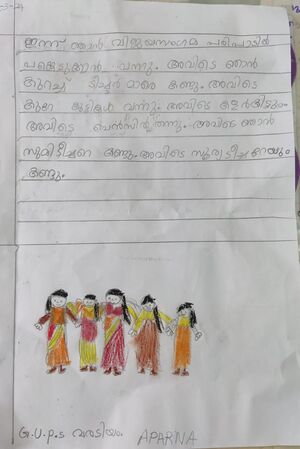 ഇന്ന് ഞാൻ വിജയസംഗമ പരിപാടിൽ
പങ്കെടുക്കാൻ വന്നു. അവിടെ ഞാൻ
കുറച്ച് ടീച്ചർ മാരെ കണ്ടു. അവിടെ
കുറേ കുട്ടികൾ വന്നു. അവിടെ
അവിടെ വന്നു. അവിടെ ഞാൻ
സുമിടീച്ചറെ കണ്ടു. അവിടെ സൂര്യ ടീച്ചറേയും
കണ്ടു.
G.U.P.S വരടിയം. APARNA